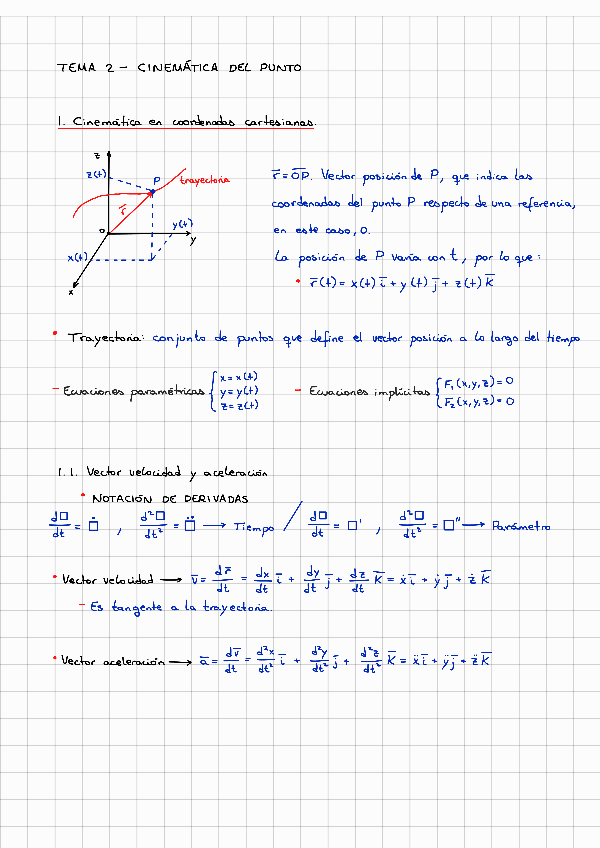 TEMA 2 - CINEMÁTICA DEL PUNTO
1. Cinemática en coordenadas cartesianas.
z
z(t)
P
trayectoria
r̄
O
y(t)
y
x(t)
x
r̄ = O̅P̅. Vector posición de P, que indica las
coordenadas del punto P respecto de una referencia,
en este caso, O.
La posición de P varía con t, por lo que:
• r̄(t) = x(t) i̅ + y(t) j̅ + z(t) k̅
• Trayectoria: conjunto de puntos que define el vector posición a lo largo del tiempo
- Ecuaciones paramétricas { x = x(t)
y = y(t)
z = z(t)
- Ecuaciones implícitas { F₁(x,y,z) = 0
F₂(x,y,z) = 0
1.1. Vector velocidad y aceleración
• NOTACIÓN DE DERIVADAS
d□/dt = □̇ , d²□/dt² = □̈ → Tiempo / d□/dt = □' , d²□/dt² = □'' → Parámetro
• Vector velocidad → v̄ = dr̄/dt = dx/dt i̅ + dy/dt j̅ + dz/dt k̅ = ẋ i̅ + ẏ j̅ + ż k̅
- Es tangente a la trayectoria.
• Vector aceleración → ā = dv̄/dt = d²x/dt² i̅ + d²y/dt² j̅ + d²z/dt² k̅ = ẍ i̅ + ÿ j̅ + z̈ k̅